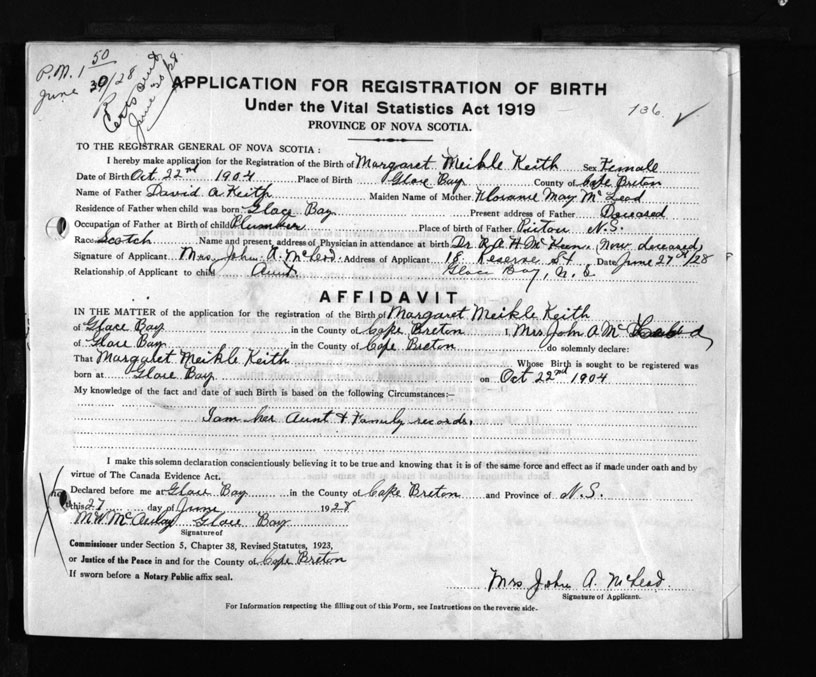 P.M. 1 50
June 30/28
Certs sent
June 30/28
APPLICATION FOR REGISTRATION OF BIRTH
Under the Vital Statistics Act 1919
PROVINCE OF NOVA SCOTIA.
136. ✓
TO THE REGISTRAR GENERAL OF NOVA SCOTIA:
I hereby make application for the Registration of the Birth of Margaret Meikle Keith Sex Female
Date of Birth Oct 22nd 1904 Place of Birth Glace Bay County of Cape Breton
Name of Father David A Keith Maiden Name of Mother Florannie May McLeod
Residence of Father when child was born Glace Bay Present address of Father Deceased
Occupation of Father at Birth of child Plumber Place of birth of Father Pictou N.S.
Race Scotch Name and present address of Physician in attendance at birth Dr. R. A. H. McKeen (Now deceased)
Signature of Applicant Mrs. John A. McLeod. Address of Applicant 18 Reserve St Date June 27th/28
Relationship of Applicant to child Aunt Glace Bay, N.S.
AFFIDAVIT
IN THE MATTER of the application for the registration of the Birth of Margaret Meikle Keith
of Glace Bay in the County of Cape Breton I, Mrs John A McLeod
of Glace Bay in the County of Cape Breton do solemnly declare:
That Margaret Meikle Keith Whose Birth is sought to be registered was
born at Glace Bay on Oct 22nd 1904
My knowledge of the fact and date of such Birth is based on the following Circumstances:—
I am her Aunt & Family records.
I make this solemn declaration conscientiously believing it to be true and knowing that it is of the same force and effect as if made under oath and by
virtue of The Canada Evidence Act.
Declared before me at Glace Bay in the County of Cape Breton and Province of N.S.
this 27 day of June 1928
M.W. McAulay Glace Bay
Signature of
Commissioner under Section 5, Chapter 38, Revised Statutes, 1923,
or Justice of the Peace in and for the County of Cape Breton
If sworn before a Notary Public affix seal.
Mrs John A. McLeod.
Signature of Applicant.
For Information respecting the filling out of this Form, see Instructions on the reverse side.